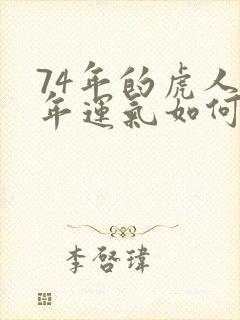 74年的虎人
年運氣如何
李啓瑋